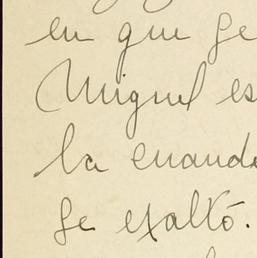 en que se
Miguel es
la cuando
se exaltó.